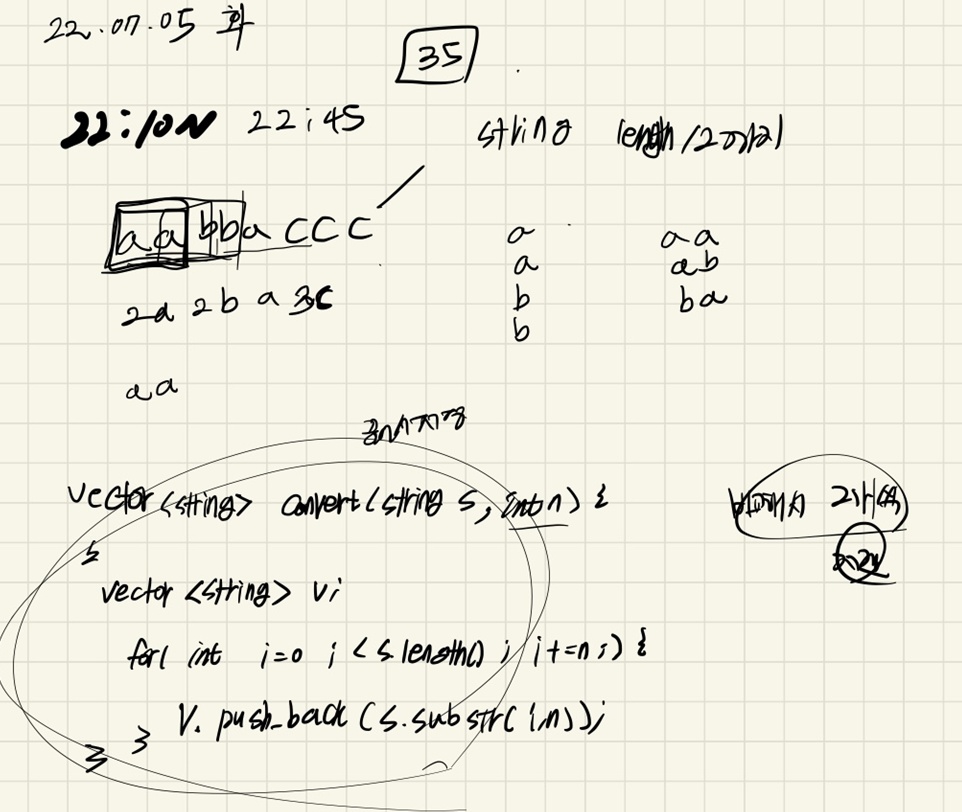 22.07.05 화
35
22:10 N 22:45
string length/2까지
aabbaccc
2a2ba3c
a
a
b
b
aa
ab
ba
aa
vector<string> convert(string s, int n) {
vector <string> v;
for( int i=0 ; < s.length() ; i+=n ;) {
V. push_back (s.substr(i,n));
}
}